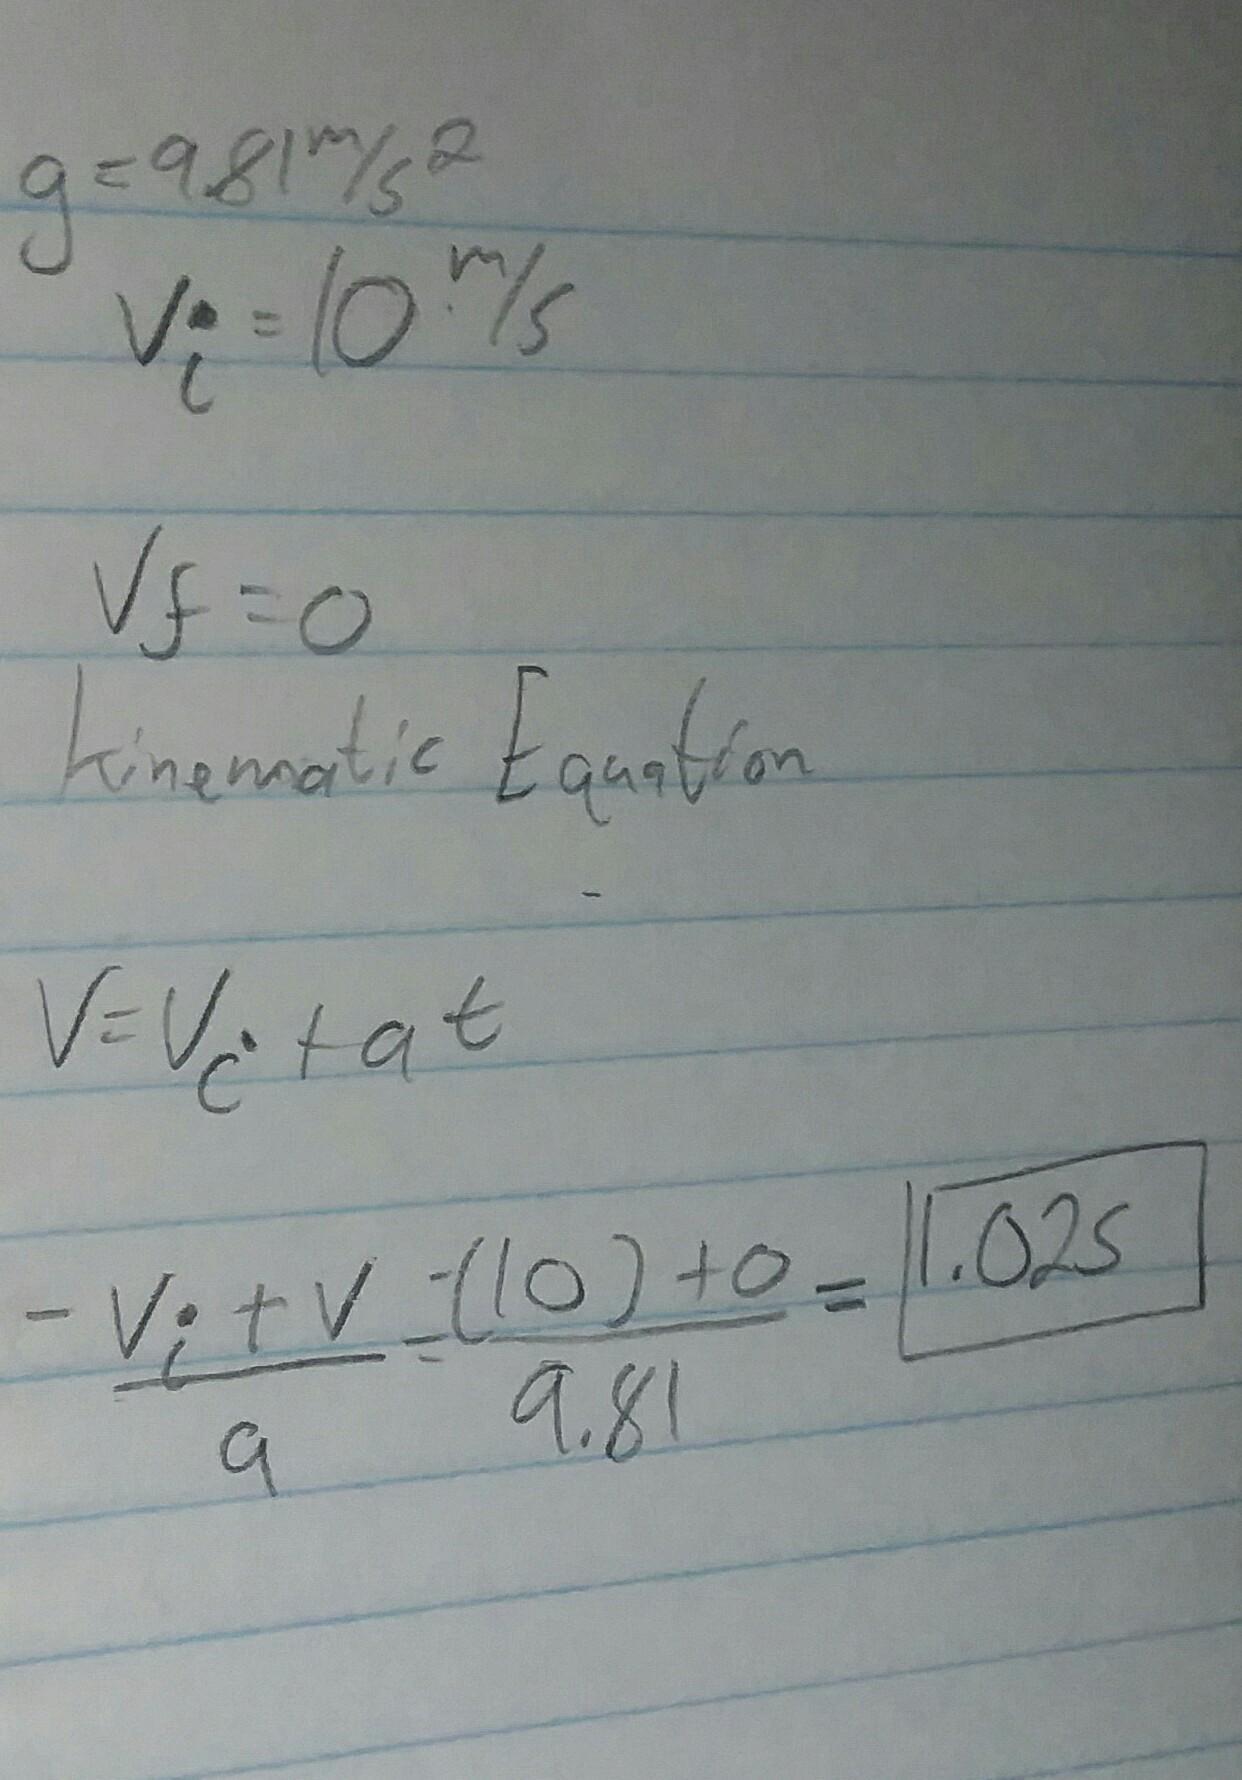 g=9.81 m/s²
Vi=10 m/s
Vf=0
kinematic Equation
V=Vi+at
-Vi+V/a = -(10)+0/9.81 = 1.02s